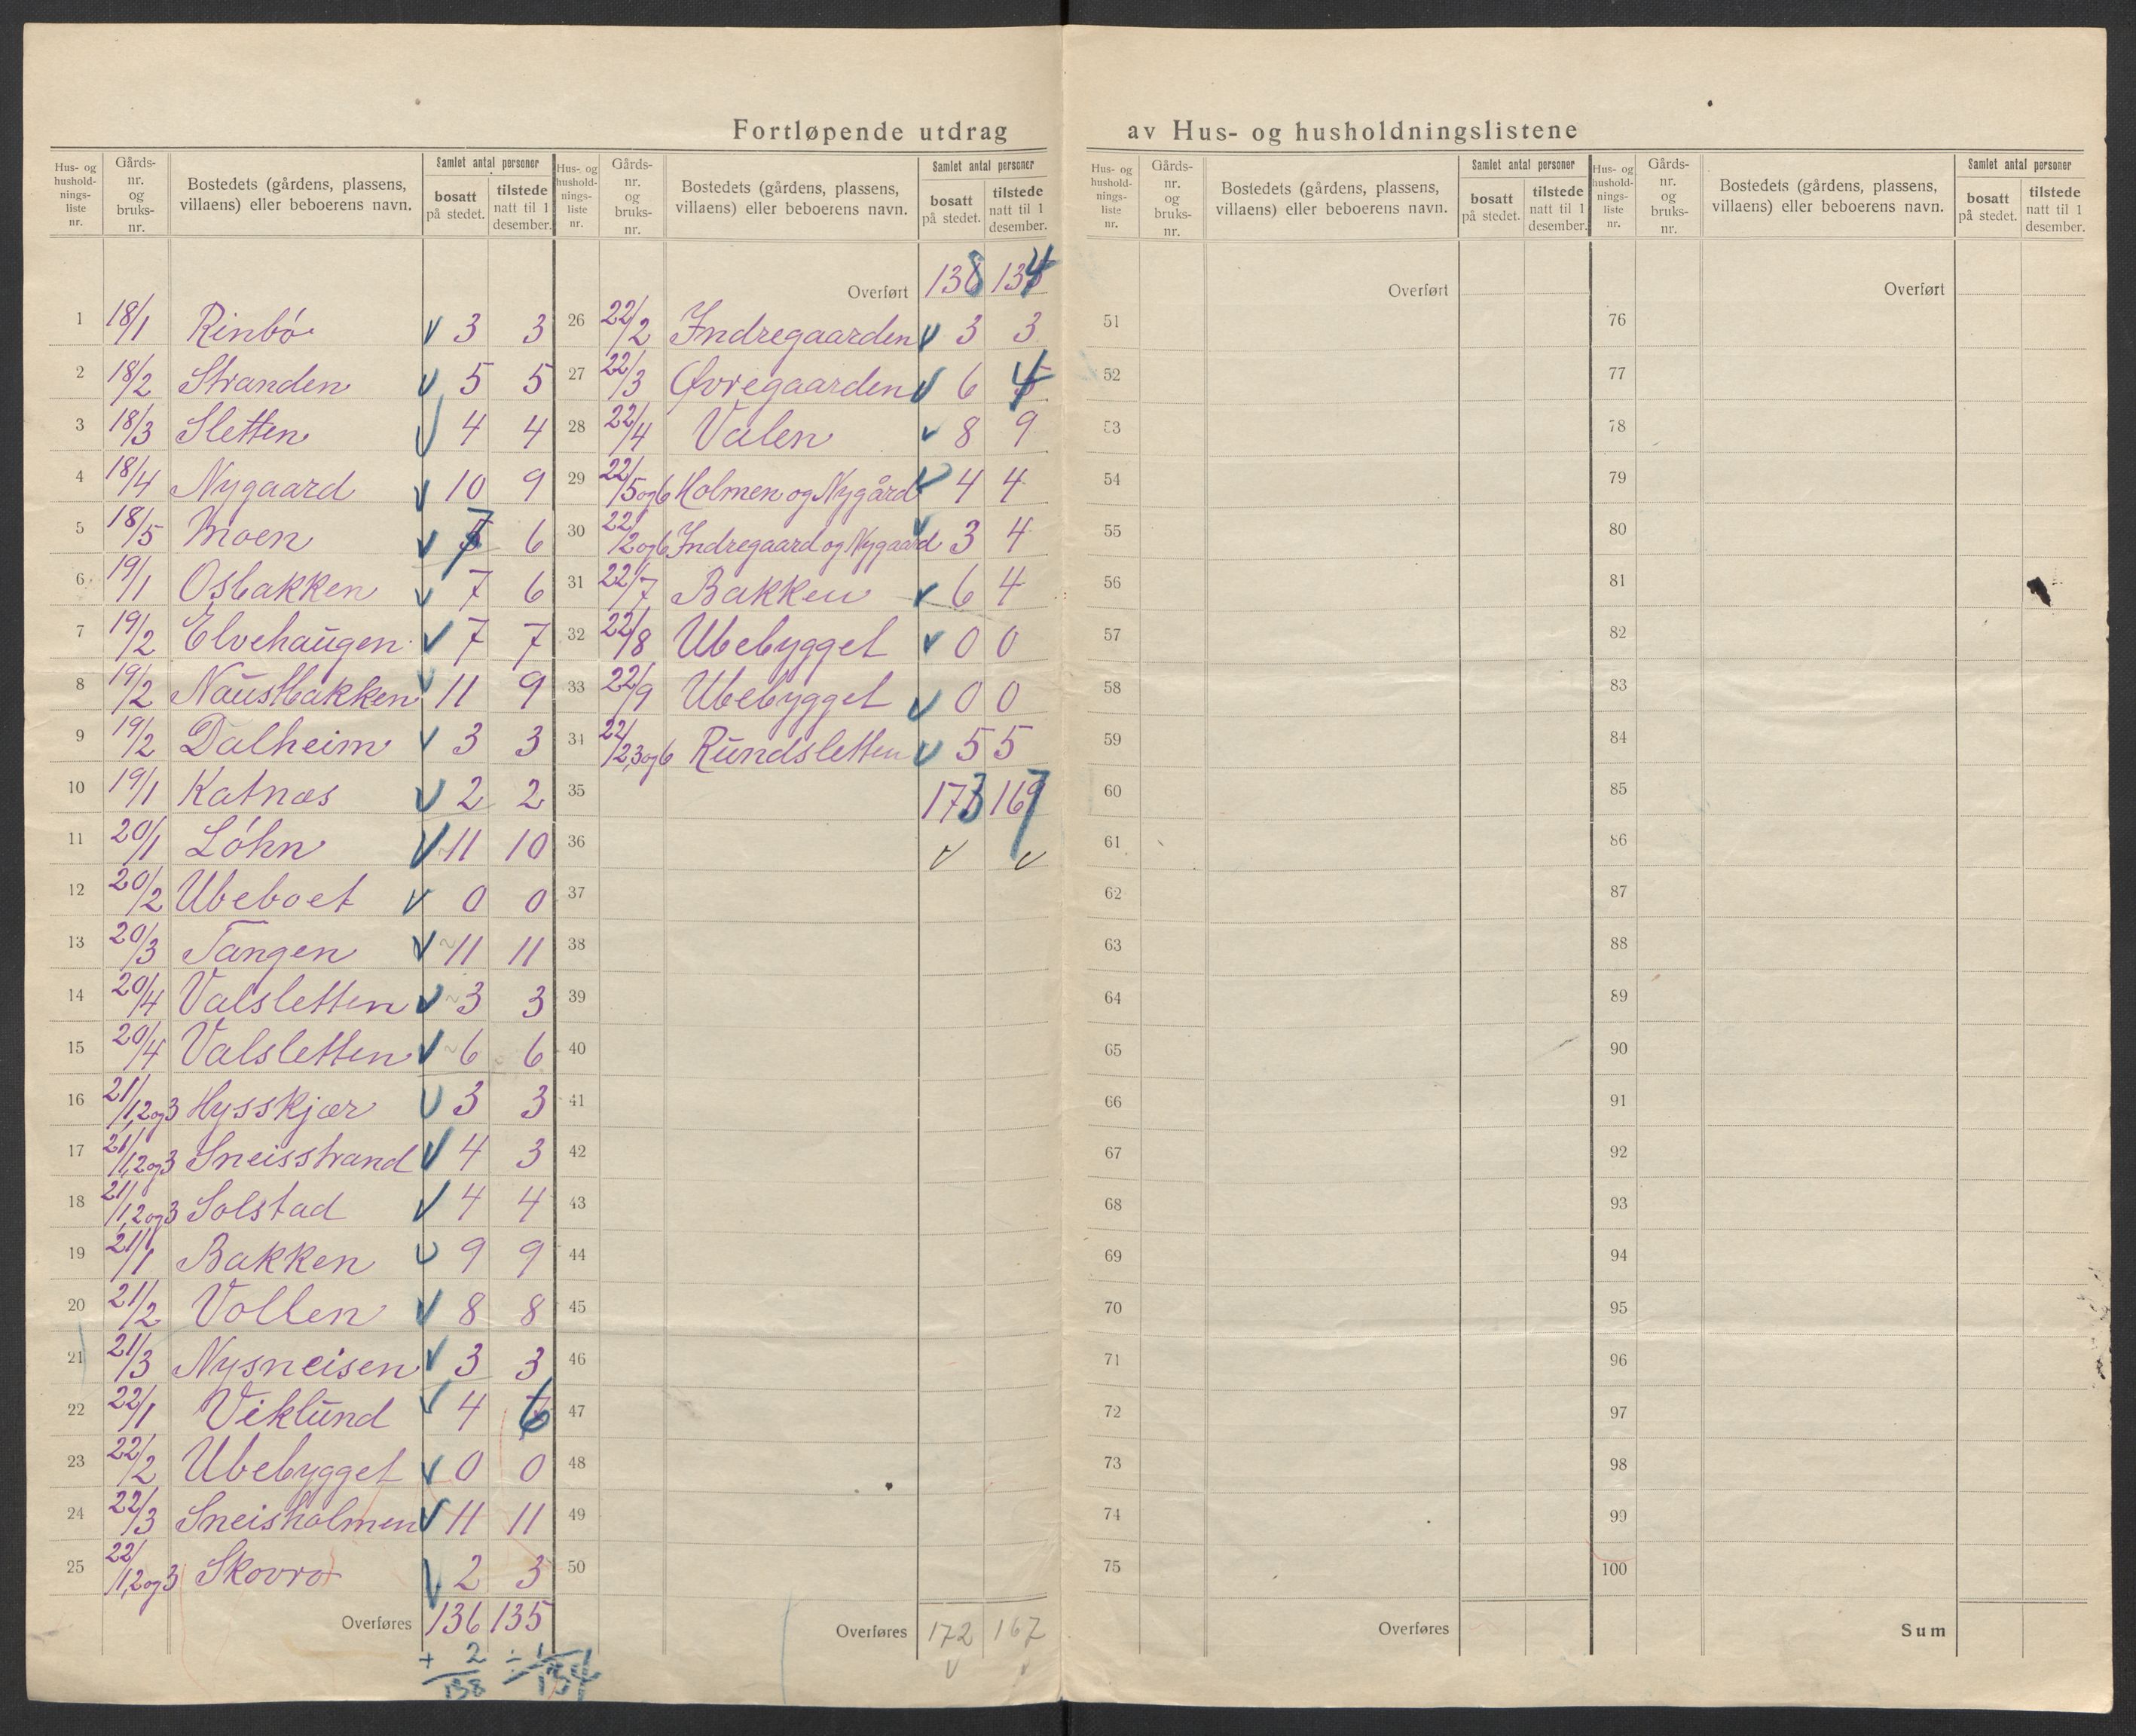 Fortløpende utdrag av Hus- og husholdningslistene
Hus- og husholdnings-liste nr. | Gårds-nr. og bruks-nr. | Bostedets (gårdens, plassens, villaens) eller beboerens navn. | Samlet antal personer bosatt på stedet. | tilstede natt til 1 desember.
1 18/1 Rinbö 3 3
2 18/2 Stranden 5 5
3 18/3 Sletten 4 4
4 18/4 Nygaard 10 9
5 18/5 Moen 7 6
6 19/1 Osbakken 7 6
7 19/2 Elvehaugen 7 7
8 19/2 Naustbakken 11 9
9 19/2 Dalheim 3 3
10 19/1 Katnæs 2 2
11 20/1 Löhn 11 10
12 20/2 Ubeboet 0 0
13 20/3 Tangen 11 11
14 20/4 Valsletten 3 3
15 20/4 Valsletten 6 6
16 21/1,2og3 Hysskjær 3 3
17 21/1,2og3 Sneisstrand 4 3
18 21/1,2og3 Solstad 4 4
19 21/1 Bakken 9 9
20 21/2 Vollen 8 8
21 21/3 Nysneisen 3 3
22 22/1 Viklund 4 6
23 22/2 Ubebygget 0 0
24 22/3 Sneisholmen 11 11
25 22/1,2og3 Skovro 2 3
Overføres 136 135
+ 2 ÷ 1
138 134
Hus- og husholdnings-liste nr. | Gårds-nr. og bruks-nr. | Bostedets (gårdens, plassens, villaens) eller beboerens navn. | Samlet antal personer bosatt på stedet. | tilstede natt til 1 desember.
Overført 138 134
26 22/2 Indregaarden 3 3
27 22/3 Øvregaarden 6 4
28 22/4 Valen 8 9
29 22/5og6 Holmen og Nygård 4 4
30 22/2og6 Indregaard og Nygaard 3 4
31 22/7 Bakken 6 4
32 22/8 Ubebygget 0 0
33 22/9 Ubebygget 0 0
31 22/2,3og6 Rundsletten 5 5
35 173 167
36
37
38
39
40
41
42
43
44
45
46
47
48
49
50
Overføres 172 167
Hus- og husholdnings-liste nr. | Gårds-nr. og bruks-nr. | Bostedets (gårdens, plassens, villaens) eller beboerens navn. | Samlet antal personer bosatt på stedet. | tilstede natt til 1 desember.
Overført
51
52
53
54
55
56
57
58
59
60
61
62
63
64
65
66
67
68
69
70
71
72
73
74
75
Overføres
Hus- og husholdnings-liste nr. | Gårds-nr. og bruks-nr. | Bostedets (gårdens, plassens, villaens) eller beboerens navn. | Samlet antal personer bosatt på stedet. | tilstede natt til 1 desember.
Overført
76
77
78
79
80
81
82
83
84
85
86
87
88
89
90
91
92
93
94
95
96
97
98
99
100
Sum